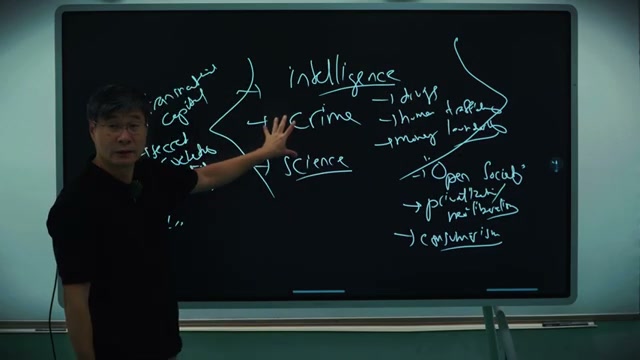 capital
secret
intelligence
→ crime
→ science
→ drugs
→ human trafficking
→ money laundering
→ "Open Society"
→ privatization
neoliberalism
→ consumerism